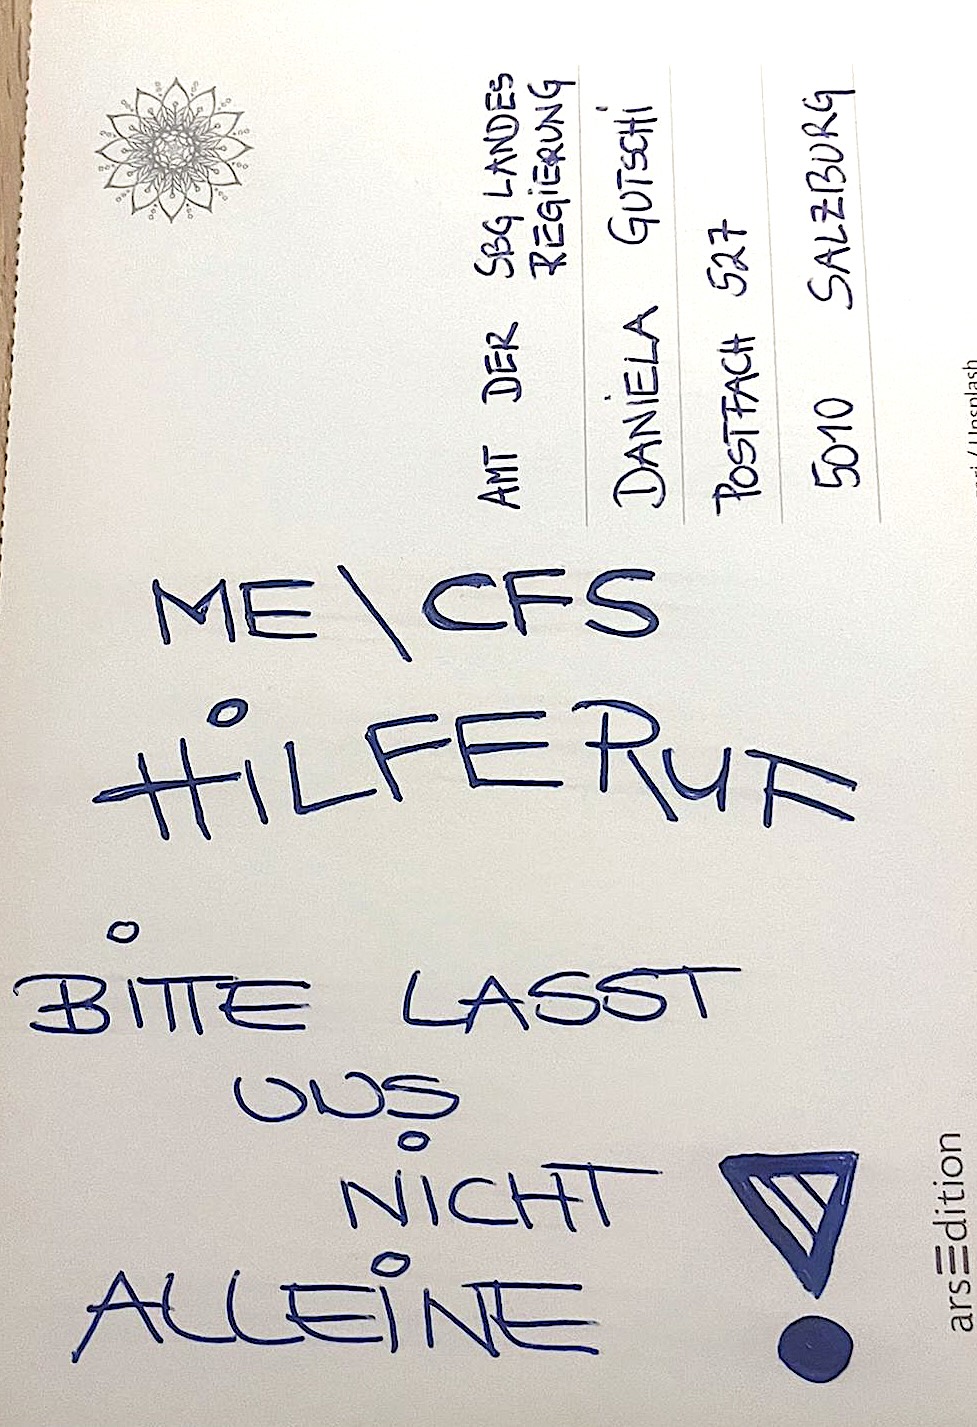 AMT DER SBG LANDES
REGIERUNG
DANIELA GUTSCHI
POSTFACH 527
5010 SALZBURG
ME\CFS
HILFERUF
BITTE LASST
UNS
NICHT
ALLEINE !
arsEdition
/ Unsplash